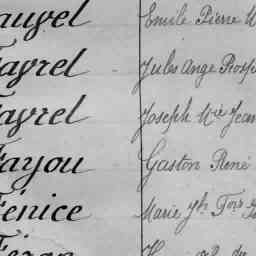 auvel Emile Pierre
Fayrel Jules Ange Prosp
Fayrel Joseph Mie Jean
Fayou Gaston René
Fénice Marie Jh Fois